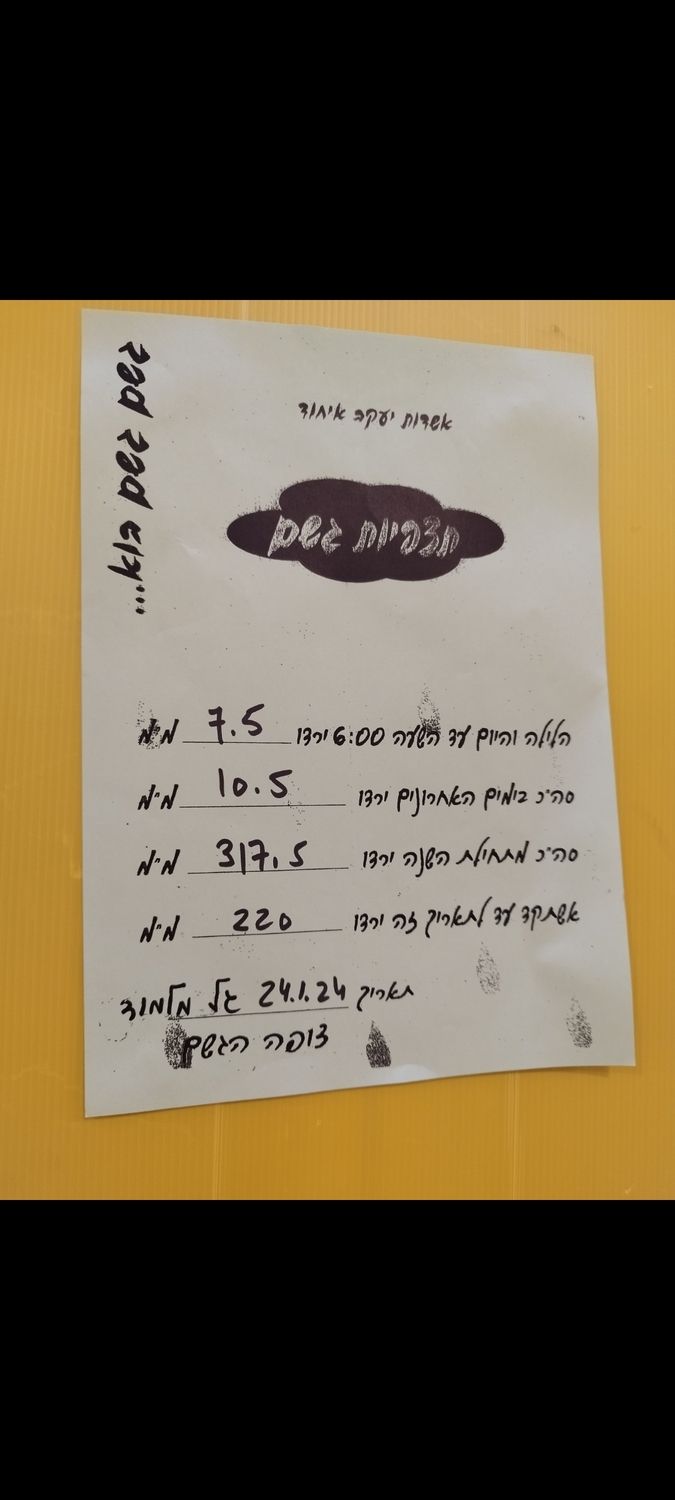 אשדות יעקב איחוד
תצפיות גשם
גשם גשם בוא...
הלילה והיום עד השעה 6:00 ירדו 7.5 מ"מ
סה"כ בימים האחרונים ירדו 10.5 מ"מ
סה"כ מתחילת השנה ירדו 317.5 מ"מ
אשתקד עד לתאריך זה ירדו 220 מ"מ
תאריך 24.1.24 גל מלמוד
צופה הגשם